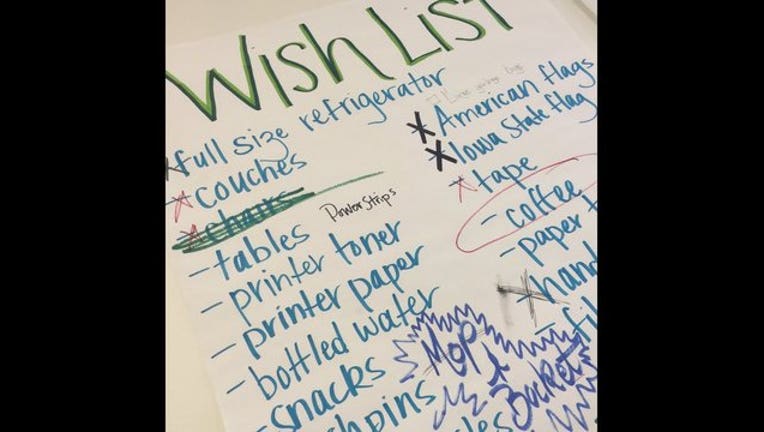 WISH LIST
full size refrigerator
couches
chairs
Power Strips
- tables
- printer toner
- printer paper
- bottled water
- snacks
American flags
Iowa State flag
tape
- coffee
- paper
- hand
Mop &
Bucket